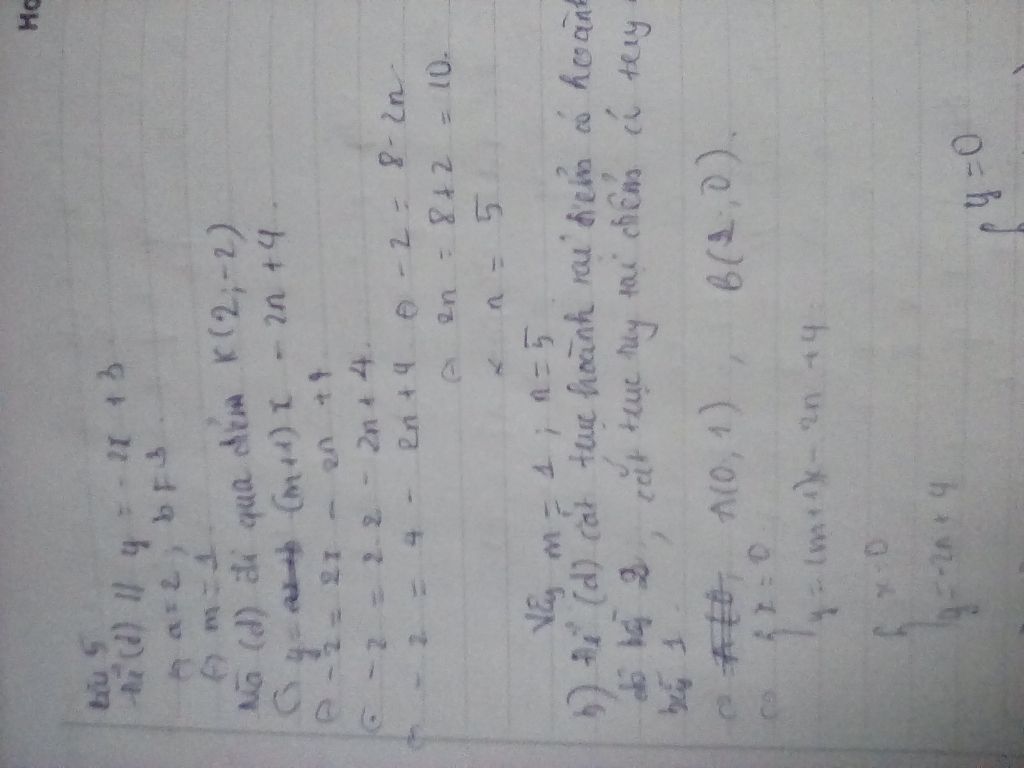 Bài 5
Để (d) // y = -2x + 3
⇔ a = 2, b ≠ 3
⇔ m = 1
Mà (d) đi qua điểm K(2;-2)
y = (m+1)x - 2n + 4.
⇔ -2 = 2x - 2n + 4
⇔ -2 = 2.2 - 2n + 4.
⇔ -2 = 4 - 2n + 4 ⇔ -2 = 8 - 2n
⇔ 2n = 8 + 2 = 10.
n = 5
Vậy m = 1; n = 5
b) Để (d) cắt trục hoành tại điểm có hoành
độ bằng 2, cắt trục tung tại điểm có tung
bằng 1.
A(0;1), B(2;0).
{ x = 0
{ y = (m+1)x - 2n + 4.
{ x = 0
{ y = -2n + 4
{ y = 0